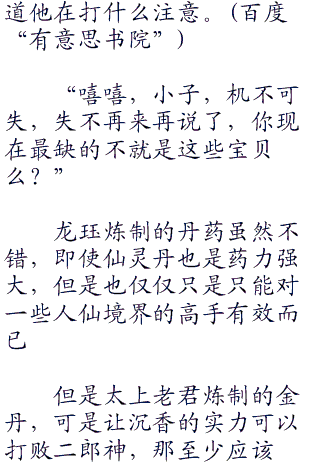 道他在打什么注意。(百度
“有意思书院”)
“嘻嘻，小子，机不可
失，失不再来再说了，你现
在最缺的不就是这些宝贝
么？”
龙珏炼制的丹药虽然不
错，即使仙灵丹也是药力强
大，但是也仅仅只是只能对
一些人仙境界的高手有效而
已
但是太上老君炼制的金
丹，可是让沉香的实力可以
打败二郎神，那至少应该